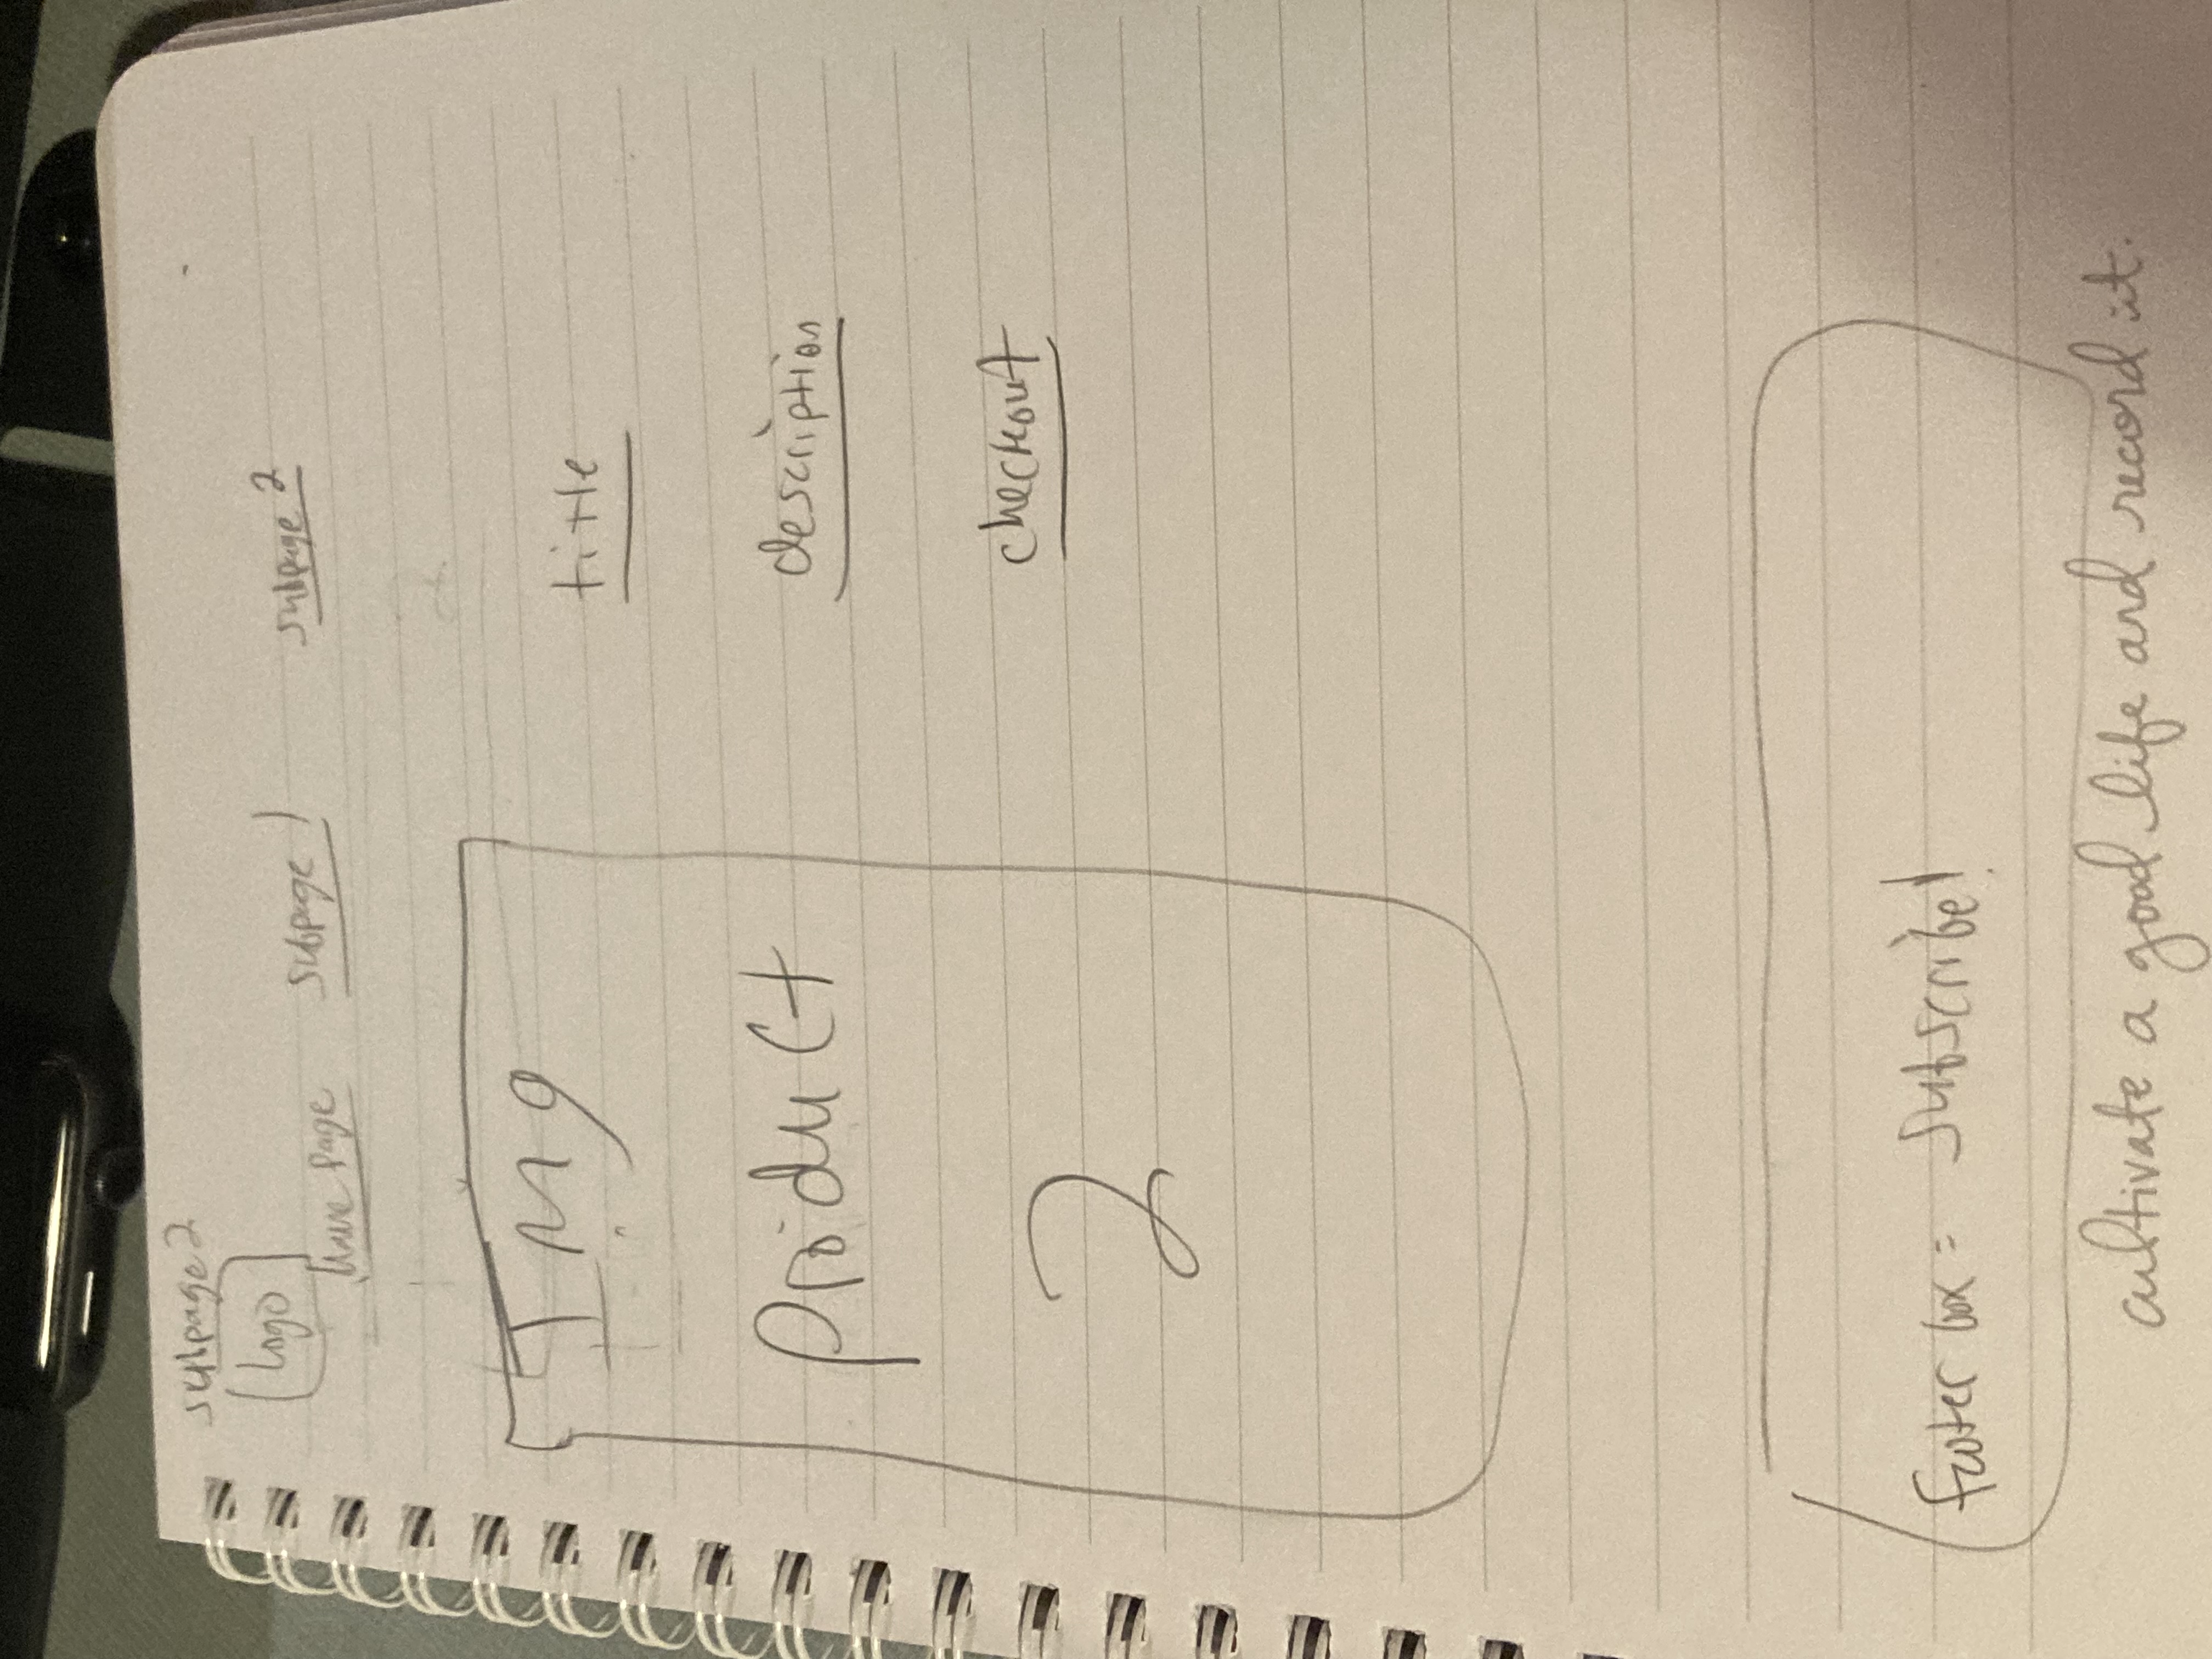 subpage 2
Logo
home page subpage 1 subpage 2
IMg
title
product
description
2
checkout
footer box = subscribe!
cultivate a good life and record it.